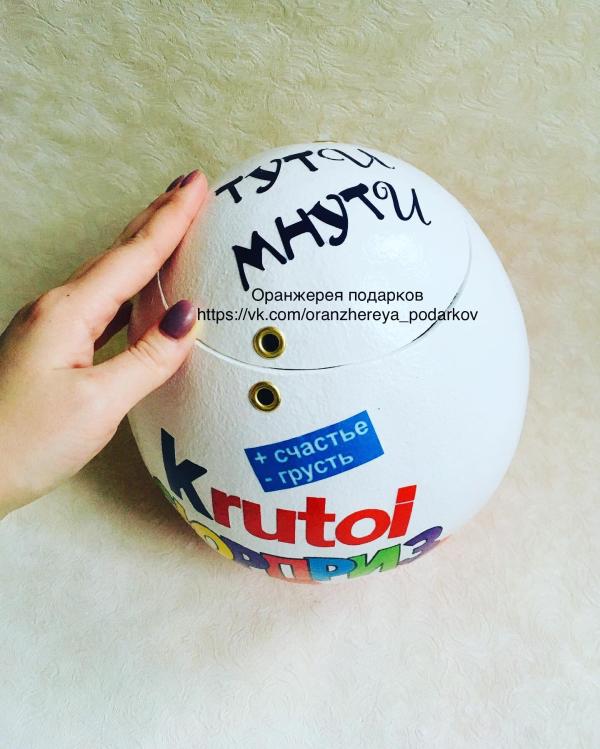 ТУТСИ
МНУТИ
Оранжерея подарков
https://vk.com/oranzhereya_podarkov
+ счастье
- грусть
krutoi